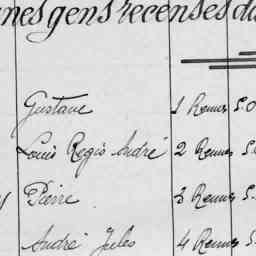 nes gens recensés da
Gustave 1 Rennes S.O
Louis Regis André 2 Rennes S.
Pierre 3 Rennes S.
André Jules 4 Rennes S.